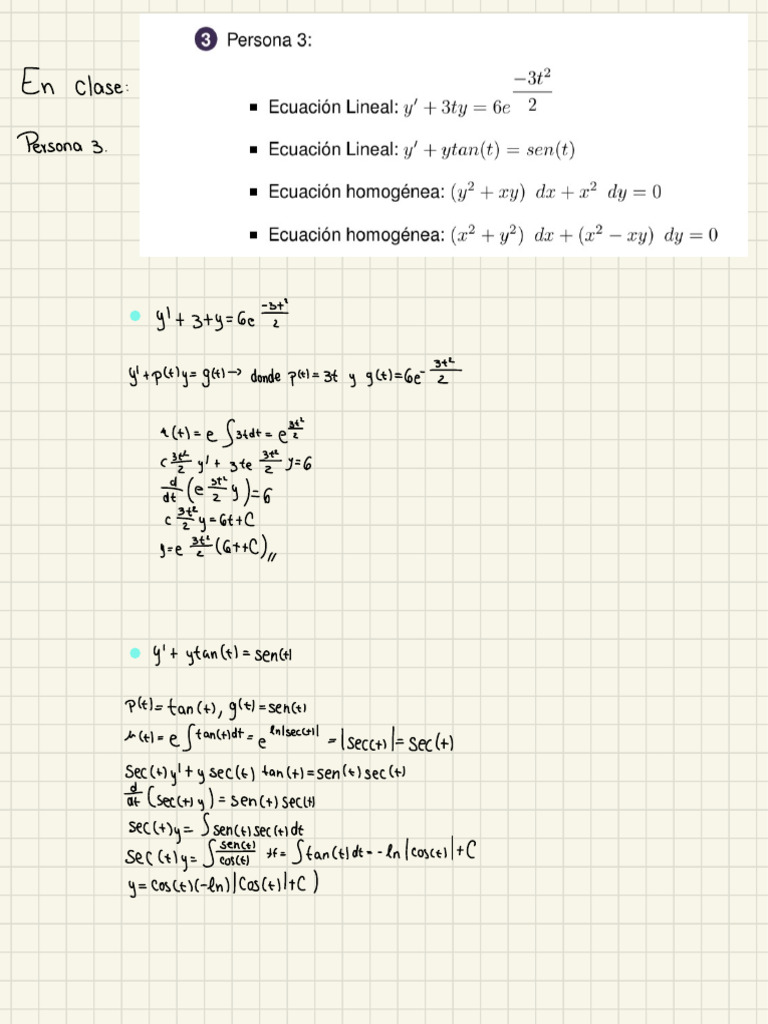 3 Persona 3:
En clase:
▪ Ecuación Lineal: y′ + 3ty = 6e^(−3t²/2)
Persona 3.
▪ Ecuación Lineal: y′ + ytan(t) = sen(t)
▪ Ecuación homogénea: (y² + xy) dx + x² dy = 0
▪ Ecuación homogénea: (x² + y²) dx + (x² − xy) dy = 0
• y' + 3+y = 6e^(−3t²/2)
y' + p(t)y = g(t) → donde p(t) = 3t y g(t) = 6e^-(3t²/2)
μ(t) = e ∫3tdt = e^(3t²/2)
e 3t²/2 y' + 3te 3t²/2 y = 6
d/dt (e 3t²/2 y) = 6
e 3t²/2 y = 6t + C
y = e 3t²/2 (6t + C) //
• y' + ytan(t) = sen(t)
p(t) = tan(t), g(t) = sen(t)
μ(t) = e ∫tan(t)dt = e^(ln|sec(t)|) = |sec(t)| = sec(t)
sec(t)y' + y sec(t) tan(t) = sen(t) sec(t)
d/dt (sec(t) y) = sen(t) sec(t)
sec(t)y = ∫ sen(t) sec(t) dt
sec(t)y = ∫ sen(t)/cos(t) dt = ∫tan(t) dt = -ln|cos(t)| + C
y = cos(t)(-ln)|cos(t)| + C)